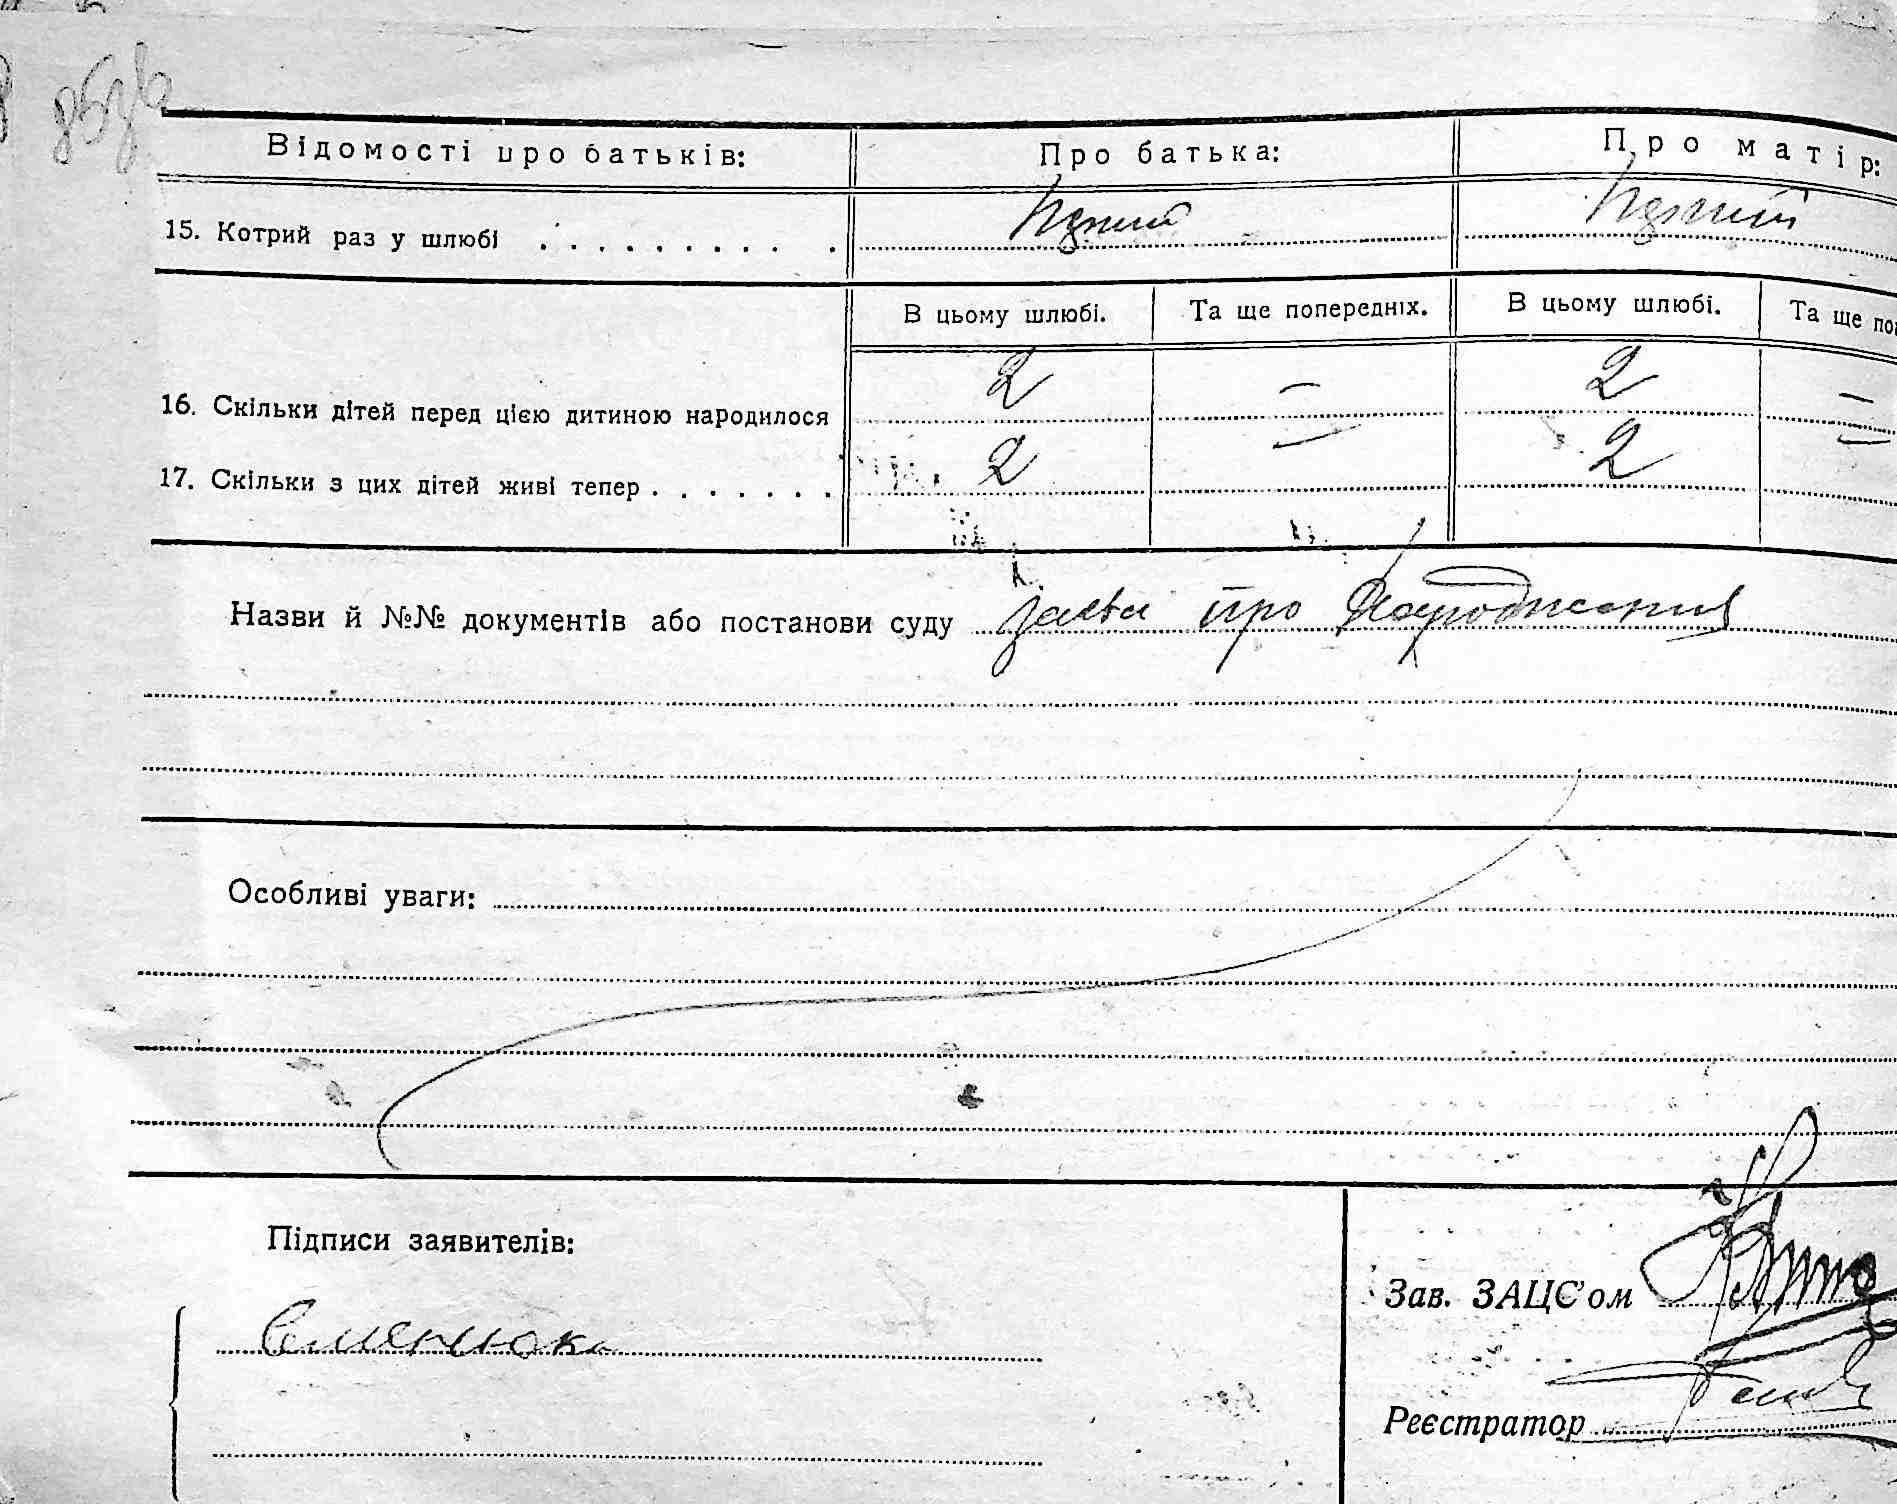 Відомості про батьків: Про батька: Про матір:
15. Котрий раз у шлюбі . . . . . . . . . . Перший Перший
В цьому шлюбі. Та ще попередніх. В цьому шлюбі. Та ще по
16. Скільки дітей перед цією дитиною народилося 2 — 2 —
17. Скільки з цих дітей живі тепер . . . . . . . 2 — 2 —
Назви й №№ документів або постанови суду заява про Народження
Особливі уваги:
Підписи заявителів:
Зав. ЗАЦС'ом
Реєстратор